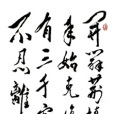 開闢荊榛
年始克復
有三千客
不忍離